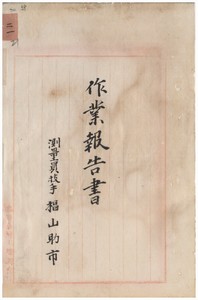 作業報告書
測量員技手 椙山助市